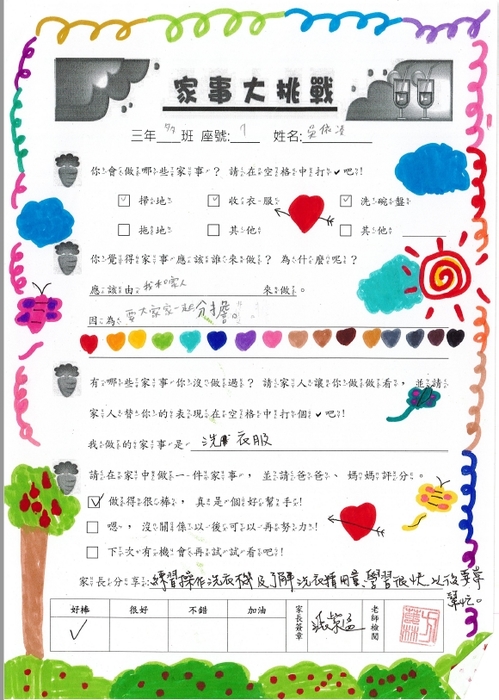 家事大挑戰
三年 班 座號: 7 姓名:
你會做哪些家事？請在空格中打✓吧!
☑ 掃地 ☑ 收衣服 ☑ 洗碗盤
☐ 拖地 ☐ 其他 ☐ 其他
你覺得家事應該誰來做？為什麼呢？
應該由 我和家人 來做。
因為 要大家一起分擔。
有哪些家事你沒做過？請家人讓你做做看，並請
家人替你的表現在空格中打個✓吧!
我做的家事是 洗衣服
請在家中做一件家事，並請爸爸、媽媽評分。
☑ 做得很棒，真是個好幫手!
☐ 嗯，沒關係以後可以再努力!
☐ 下次有機會再試試看吧!
家長分享: 練習操作洗衣機及了解洗衣精用量,學習很快,以後要常
幫忙。
好棒 很好 不錯 加油 家長簽章 老師檢閱
✓